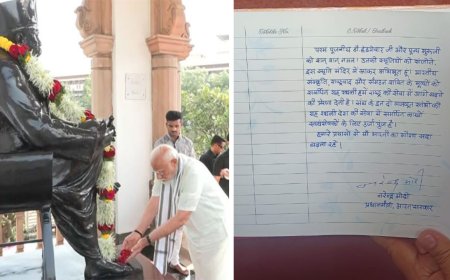 परम पूजनीय डॉ. हेडगेवार जी और पूज्य गुरूजी
को शत् शत् नमन। उनकी स्मृतियों को संजोते,
इस स्मृति मंदिर में आकर अभिभूत हूं। भारतीय
संस्कृति, राष्ट्रवाद और संगठन शक्ति के मूल्यों को
समर्पित यह स्थली हमें राष्ट्र की सेवा में आगे बढ़ने
की प्रेरणा देती है। संघ के इन दो मजबूत स्तंभों की
यह स्थली देश की सेवा में समर्पित लाखों
स्वयंसेवकों के लिए ऊर्जा पुंज है।
हमारे प्रयासों से माँ भारती का गौरव सदा
बढ़ता रहे!
नरेन्द्र मोदी
प्रधानमंत्री, भारत सरकार